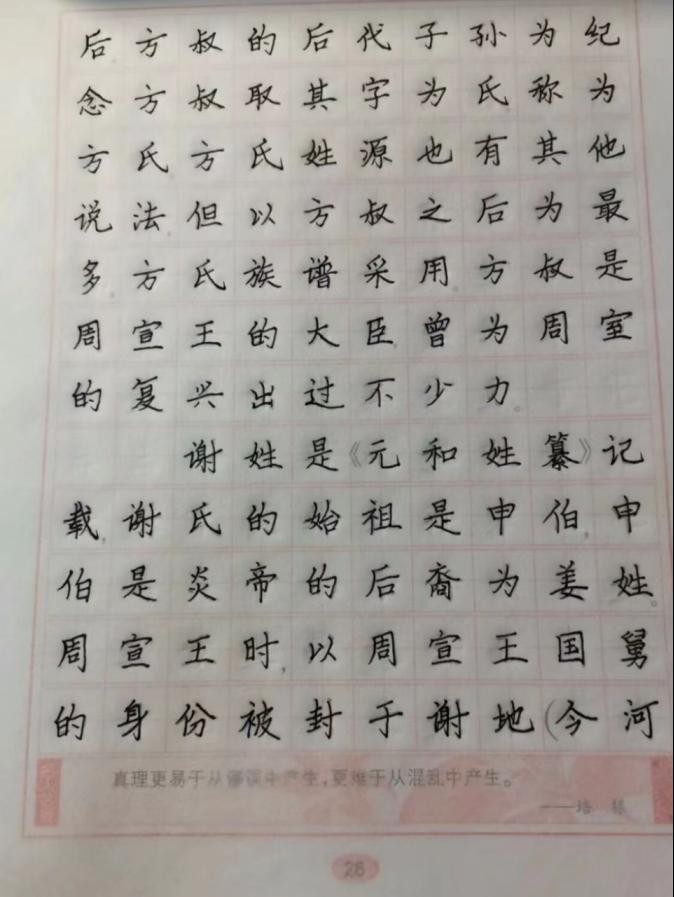 后方叔的后代子孙为纪
念方叔取其字为氏,称为
方氏.方氏姓源也有其他
说法,但以方叔之后为最
多。方氏族谱采用.方叔是
周宣王的大臣,曾为周室
的复兴出过不少力。
谢姓是《元和姓纂》记
载,谢氏的始祖是申伯,申
伯是炎帝的后裔为姜姓。
周宣王时,以周宣王国舅
的身份被封于谢地(今河
真理更易于从谬误中产生,更难于从混乱中产生。
——培根
26